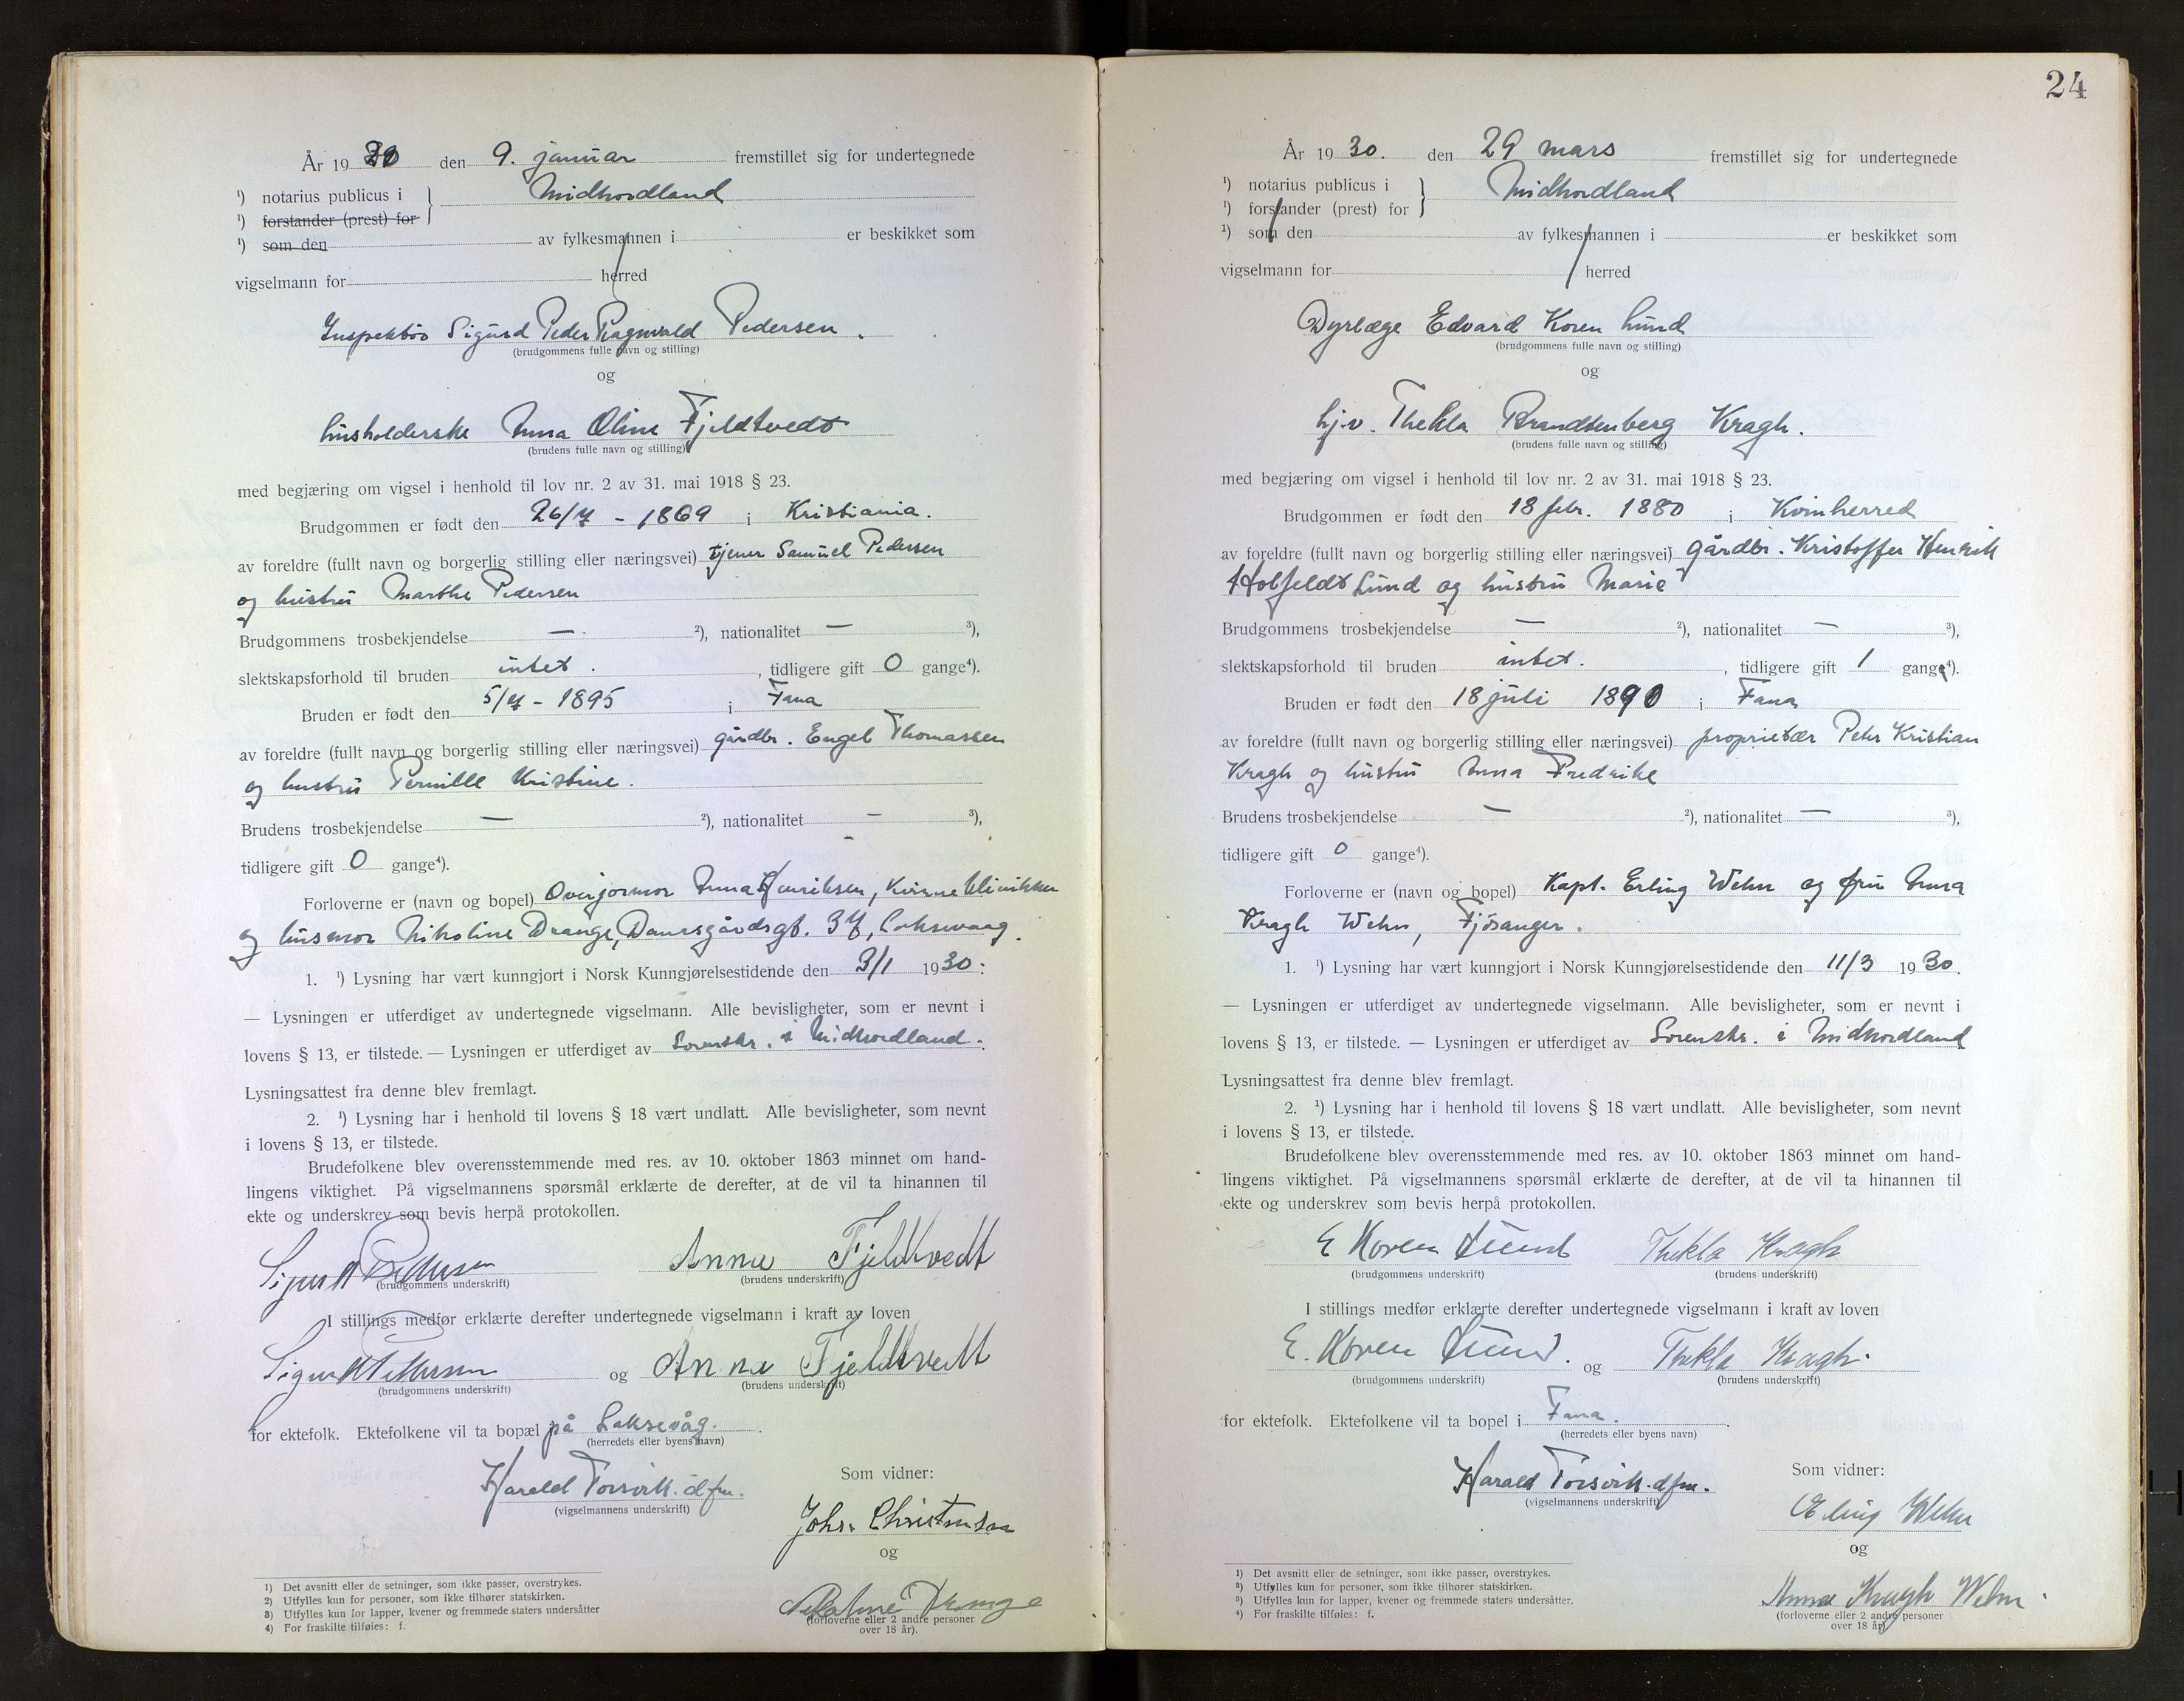 År 1930 den 9. januar fremstillet sig for undertegnede
¹) notarius publicus i } Midhordland
¹) forstander (prest) for
¹) som den av fylkesmannen i er beskikket som
vigselmann for herred
Inspektör Sigurd Peder Ragnvald Pedersen.
(brudgommens fulle navn og stilling)
og
husholderske Anna Oline Fjeldtvedt
(brudens fulle navn og stilling)
med begjæring om vigsel i henhold til lov nr. 2 av 31. mai 1918 § 23.
Brudgommen er født den 26/7 - 1869 i Kristiania.
av foreldre (fullt navn og borgerlig stilling eller næringsvei) tjener Samuel Pedersen
og hustru Marthe Pedersen
Brudgommens trosbekjendelse — ²), nationalitet — ³),
slektskapsforhold til bruden intet. , tidligere gift 0 gange⁴).
Bruden er født den 5/7 - 1895 i Fana
av foreldre (fullt navn og borgerlig stilling eller næringsvei) gårdbr. Engel Thomassen
og hustru Pernille Kristine.
Brudens trosbekjendelse — ²), nationalitet — ³),
tidligere gift 0 gange⁴).
Forloverne er (navn og bopel) Overjormor Anna Henriksen, Kvinneklinikken
og husmor Nikoline Drange, Damsgårdsgt. 37, Laksevaag.
1. ¹) Lysning har vært kunngjort i Norsk Kunngjørelsestidende den 3/1 1930.
— Lysningen er utferdiget av undertegnede vigselmann. Alle bevisligheter, som er nevnt i
lovens § 13, er tilstede. — Lysningen er utferdiget av Sorenskr. i Midhordland.
Lysningsattest fra denne blev fremlagt.
2. ¹) Lysning har i henhold til lovens § 18 vært undlatt. Alle bevisligheter, som nevnt
i lovens § 13, er tilstede.
Brudefolkene blev overensstemmende med res. av 10. oktober 1863 minnet om hand-
lingens viktighet. På vigselmannens spørsmål erklærte de derefter, at de vil ta hinannen til
ekte og underskrev som bevis herpå protokollen.
Sigurd Pedersen Anna Fjeldtvedt
(brudgommens underskrift) (brudens underskrift)
I stillings medfør erklærte derefter undertegnede vigselmann i kraft av loven
Sigurd Pedersen og Anna Fjeldtvedt
(brudgommens underskrift) (brudens underskrift)
for ektefolk. Ektefolkene vil ta bopæl på Laksevåg.
(herredets eller byens navn)
Harald Torsvik. dfm.
(vigselmannens underskrift)
Som vidner:
Johs. Christensen
og
Nikoline Drange
(forloverne eller 2 andre personer
over 18 år).
1) Det avsnitt eller de setninger, som ikke passer, overstrykes.
2) Utfylles kun for personer, som ikke tilhører statskirken.
3) Utfylles kun for lapper, kvener og fremmede staters undersåtter
4) For fraskilte tilføies: f.
24
År 1930. den 29 mars fremstillet sig for undertegnede
¹) notarius publicus i } Midhordland
¹) forstander (prest) for
¹) som den av fylkesmannen i er beskikket som
vigselmann for herred
Dyrlæge Edvard Koren Lund
(brudgommens fulle navn og stilling)
og
hj.v. Thekla Brandtenberg Kragh.
(brudens fulle navn og stilling)
med begjæring om vigsel i henhold til lov nr. 2 av 31. mai 1918 § 23.
Brudgommen er født den 18 febr. 1880 i Kvinherred
av foreldre (fullt navn og borgerlig stilling eller næringsvei) gårdbr. Kristoffer Henrik
Holfeldt Lund og hustru Marie
Brudgommens trosbekjendelse — ²), nationalitet — ³),
slektskapsforhold til bruden intet. , tidligere gift 1 gange⁴).
Bruden er født den 18 juli 1890 i Fana
av foreldre (fullt navn og borgerlig stilling eller næringsvei) proprietær Peter Kristian
Kragh og hustru Anna Fredrike
Brudens trosbekjendelse — ²), nationalitet — ³),
tidligere gift 0 gange⁴).
Forloverne er (navn og bopel) Kapt. Erling Wehn og fru Anna
Kragh Wehn, Fjösanger.
1. ¹) Lysning har vært kunngjort i Norsk Kunngjørelsestidende den 11/3 1930.
— Lysningen er utferdiget av undertegnede vigselmann. Alle bevisligheter, som er nevnt i
lovens § 13, er tilstede. — Lysningen er utferdiget av Sorenskr. i Midhordland
Lysningsattest fra denne blev fremlagt.
2. ¹) Lysning har i henhold til lovens § 18 vært undlatt. Alle bevisligheter, som nevnt
i lovens § 13, er tilstede.
Brudefolkene blev overensstemmende med res. av 10. oktober 1863 minnet om hand-
lingens viktighet. På vigselmannens spørsmål erklærte de derefter, at de vil ta hinannen til
ekte og underskrev som bevis herpå protokollen.
E Koren Lund Thekla Kragh
(brudgommens underskrift) (brudens underskrift)
I stillings medfør erklærte derefter undertegnede vigselmann i kraft av loven
E. Koren Lund. og Thekla Kragh.
(brudgommens underskrift) (brudens underskrift)
for ektefolk. Ektefolkene vil ta bopel i Fana.
(herredets eller byens navn)
Harald Torsvik. dfm.
(vigselmannens underskrift)
Som vidner:
Erling Wehn
og
Anna Kragh Wehn.
(forloverne eller 2 andre personer
over 18 år)
1) Det avsnitt eller de setninger, som ikke passer, overstrykes.
2) Utfylles kun for personer, som ikke tilhører statskirken.
3) Utfylles kun for lapper, kvener og fremmede staters undersåtter.
4) For fraskilte tilføies: f.